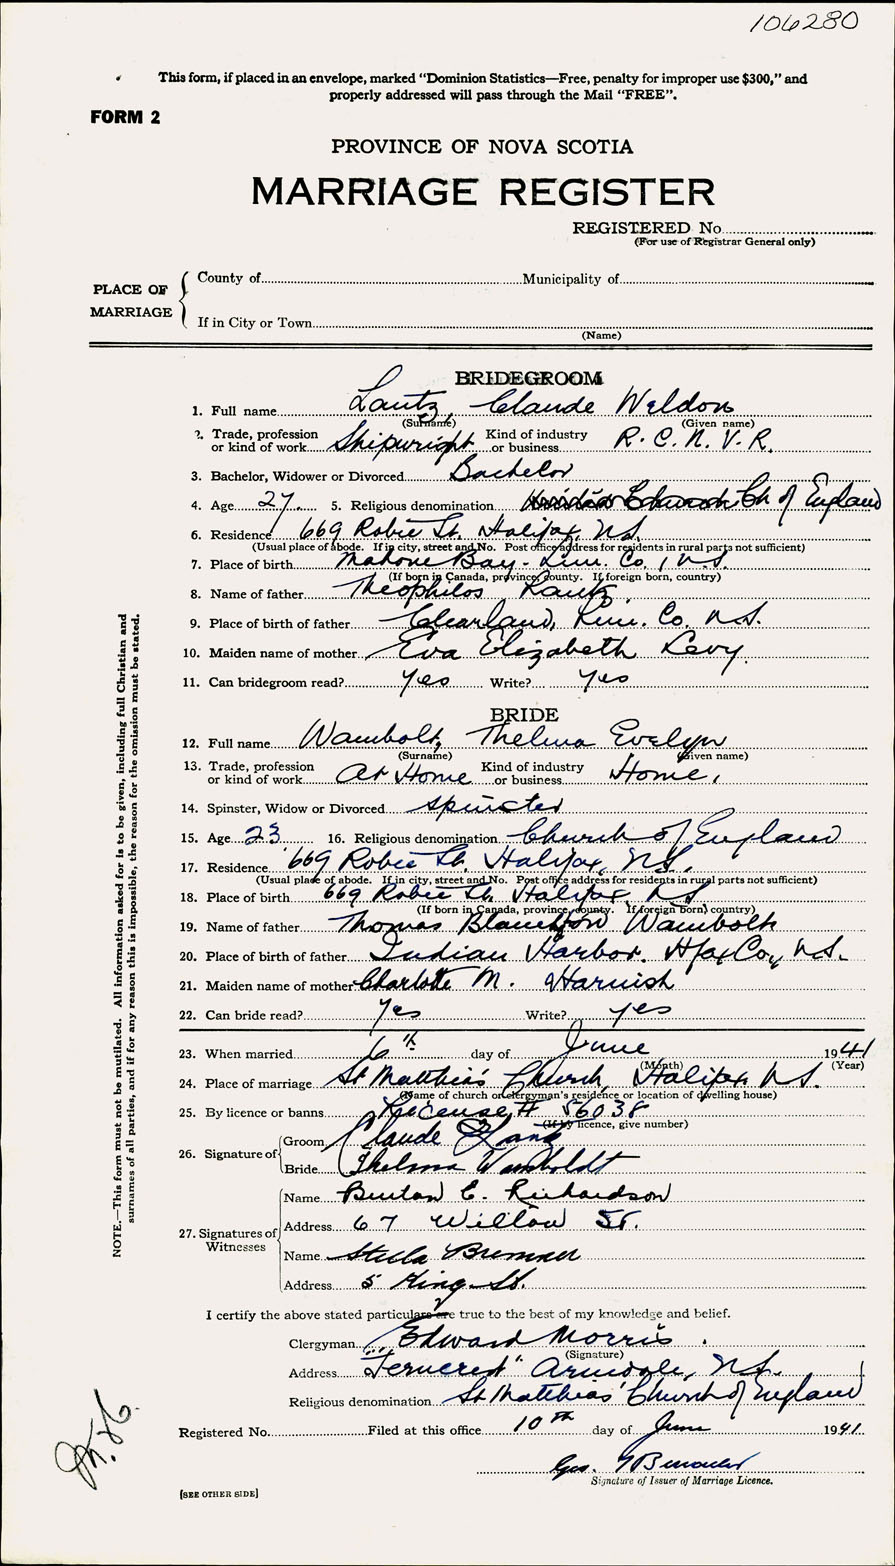 106280
This form, if placed in an envelope, marked "Dominion Statistics—Free, penalty for improper use $300," and
properly addressed will pass through the Mail "FREE".
FORM 2
PROVINCE OF NOVA SCOTIA
MARRIAGE REGISTER
REGISTERED No.
(For use of Registrar General only)
PLACE OF MARRIAGE
County of Municipality of
If in City or Town
(Name)
BRIDEGROOM
1. Full name Lantz, Claude Weldon
(Surname) (Given name)
2. Trade, profession or kind of work Shipwright Kind of industry or business R.C.N.V.R.
3. Bachelor, Widower or Divorced Bachelor
4. Age 27 5. Religious denomination Ch of England
6. Residence 669 Robie St. Halifax, N.S.
(Usual place of abode. If in city, street and No. Post office address for residents in rural parts not sufficient)
7. Place of birth Mahone Bay - Lun. Co., N.S.
(If born in Canada, province, county. If foreign born, country)
8. Name of father Theophilos Lantz
9. Place of birth of father Clearland, Lun. Co. N.S.
10. Maiden name of mother Eva Elizabeth Levy
11. Can bridegroom read? Yes Write? Yes
BRIDE
12. Full name Wambolt, Thelma Evelyn
(Surname) (Given name)
13. Trade, profession or kind of work At Home Kind of industry or business Home.
14. Spinster, Widow or Divorced Spinster
15. Age 23 16. Religious denomination Church of England
17. Residence 669 Robie St. Halifax, N.S.
(Usual place of abode. If in city, street and No. Post office address for residents in rural parts not sufficient)
18. Place of birth 669 Robie St. Halifax N.S
(If born in Canada, province, county. If foreign born, country)
19. Name of father Thomas Wambolt
20. Place of birth of father Indian Harbor. Hfax Co., N.S.
21. Maiden name of mother Charlotte M. Harnish
22. Can bride read? Yes Write? Yes
23. When married 6th day of June 1941
(Month) (Year)
24. Place of marriage St Matthias' Church, Halifax N.S.
(Name of church or clergyman's residence or location of dwelling house)
25. By licence or banns License # 56038
(If by licence, give number)
26. Signature of
Groom Claude Lantz
Bride Thelma Wamboldt
27. Signatures of Witnesses
Name Burton E. Richardson
Address 67 Willow St.
Name Stella Bremner
Address 5 King St.
I certify the above stated particulars are true to the best of my knowledge and belief.
Clergyman Edward Morris.
(Signature)
Address "Ferncrest" Armdale, N.S.
Religious denomination St Matthias' Church of England
Registered No. Filed at this office 10th day of June 1941.
Geo.
Signature of Issuer of Marriage Licence.
[SEE OTHER SIDE]
NOTE.—This form must not be mutilated. All information asked for is to be given, including full Christian and
surnames of all parties, and if for any reason this is impossible, the reason for the omission must be stated.